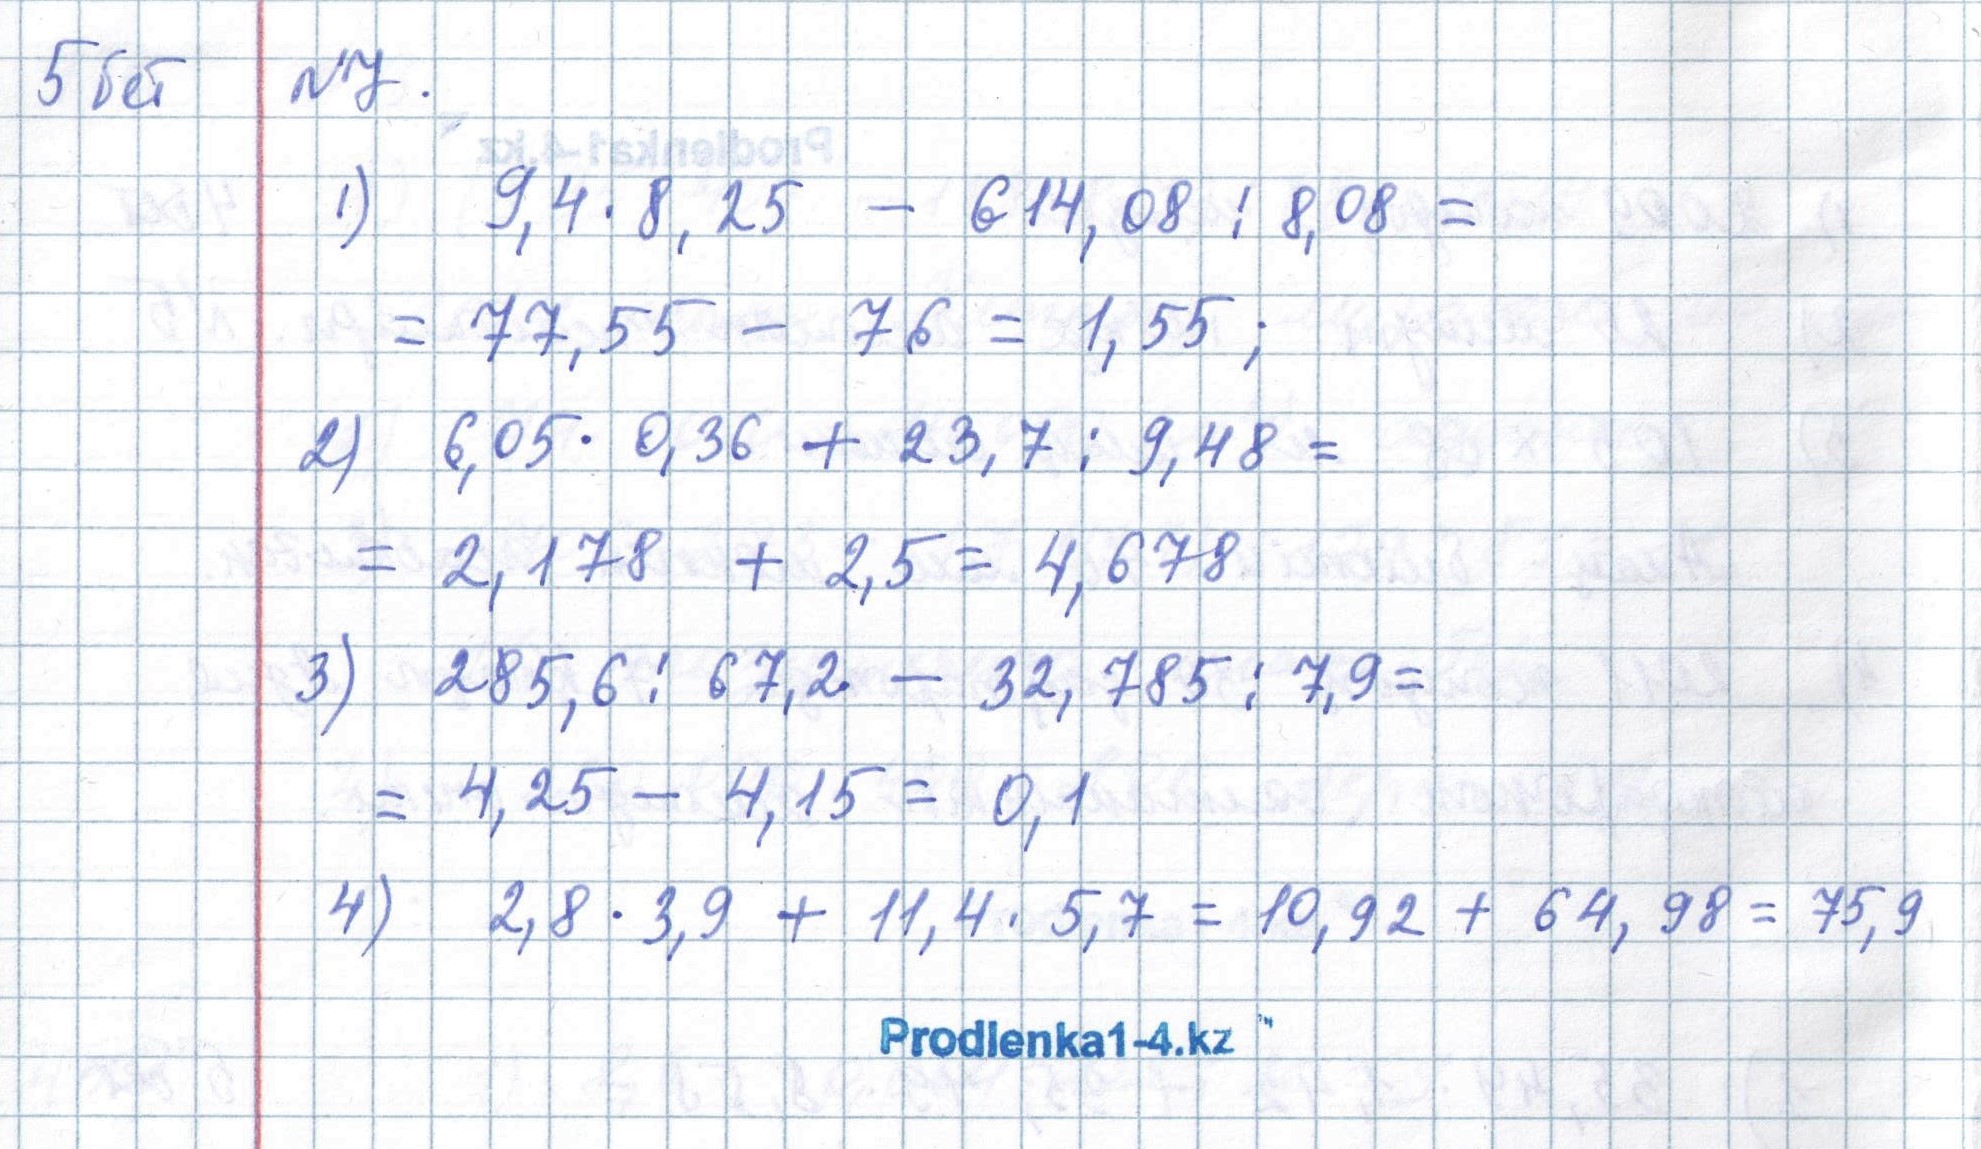 5 бет №7.
1) 9,4 · 8,25 – 614,08 : 8,08 =
= 77,55 – 76 = 1,55 ;
2) 6,05 · 0,36 + 23,7 : 9,48 =
= 2,178 + 2,5 = 4,678
3) 285,6 : 67,2 – 32,785 : 7,9 =
= 4,25 – 4,15 = 0,1
4) 2,8 · 3,9 + 11,4 · 5,7 = 10,92 + 64,98 = 75,9
Prodlenka1-4.kz